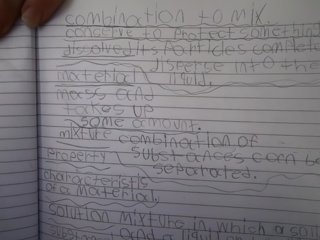 combination to mix.
conserve to protect somethin
dissolved its particles complete
disperse into the
material liquid.
mass and
takes up
some amount.
mixture combination of
property substances can be
separated.
characteristis
of a material.
solution mixture in which a soli
substan and a liqu